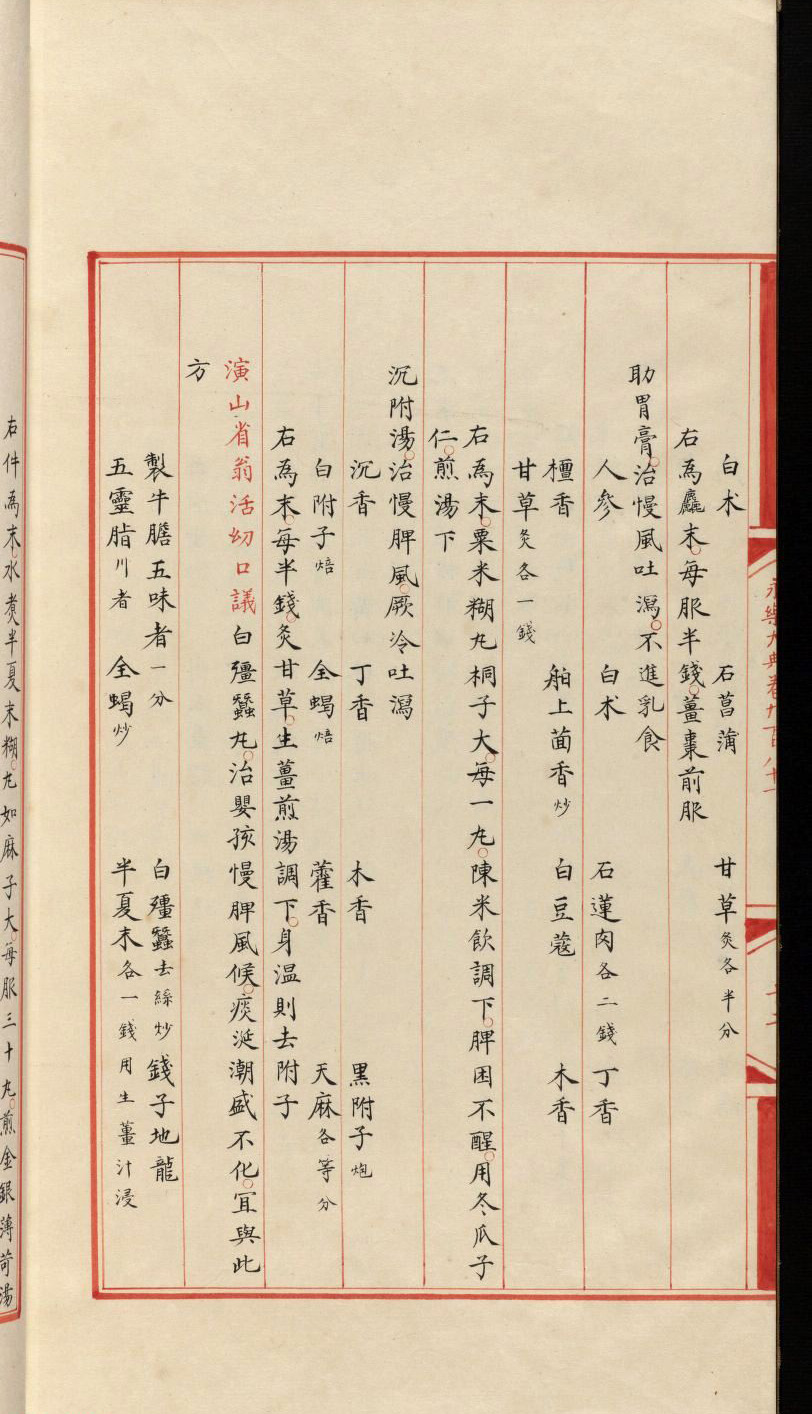 白朮　石菖蒲　甘草炙各半分
右為麄末。每服半錢。薑棗前服
助胃膏。治慢風吐瀉。不進乳食
人參　白朮　石蓮肉各二錢　丁香
檀香　舶上茴香炒　白豆蔻　木香
甘草炙各一錢
右為末。粟米糊丸桐子大。每一丸。陳米飲調下。脾困不醒。用冬瓜子
仁。煎湯下
沉附湯。治慢脾風。厥冷吐瀉
沉香　丁香　木香　黑附子炮
白附子焙　全蝎焙　藿香　天麻各等分
右為末。每半錢。炙甘草。生薑煎湯調下。身溫則去附子
演山省翁活幼口議白殭蠶丸。治嬰孩慢脾風候。痰涎潮盛不化。冝與此
方
製牛膽五味者一分　白殭蠶去絲炒　錢子地龍
五靈脂川者　全蝎炒　半夏末各一錢用生薑汁浸
右件為末。水煑半夏末糊。丸如麻子大。每服三十丸。煎金銀薄荷湯